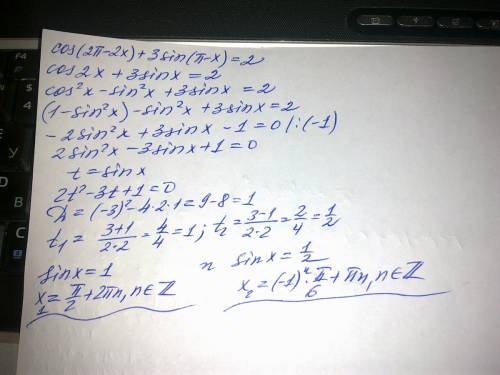 cos(2π-2x)+3sin(π-x)=2
cos2x+3sinx=2
cos²x-sin²x+3sinx=2
(1-sin²x)-sin²x+3sinx=2
-2sin²x+3sinx-1=0 /:(-1)
2sin²x-3sinx+1=0
t=sinx
2t²-3t+1=0
D=(-3)²-4·2·1=9-8=1
t₁=(3+1)/(2·2)=4/4=1; t₂=(3-1)/(2·2)=2/4=1/2
sinx=1 и sinx=1/2
x₁=π/2+2πn, n∈ℤ x₂=(-1)ⁿ·π/6+πn, n∈ℤ